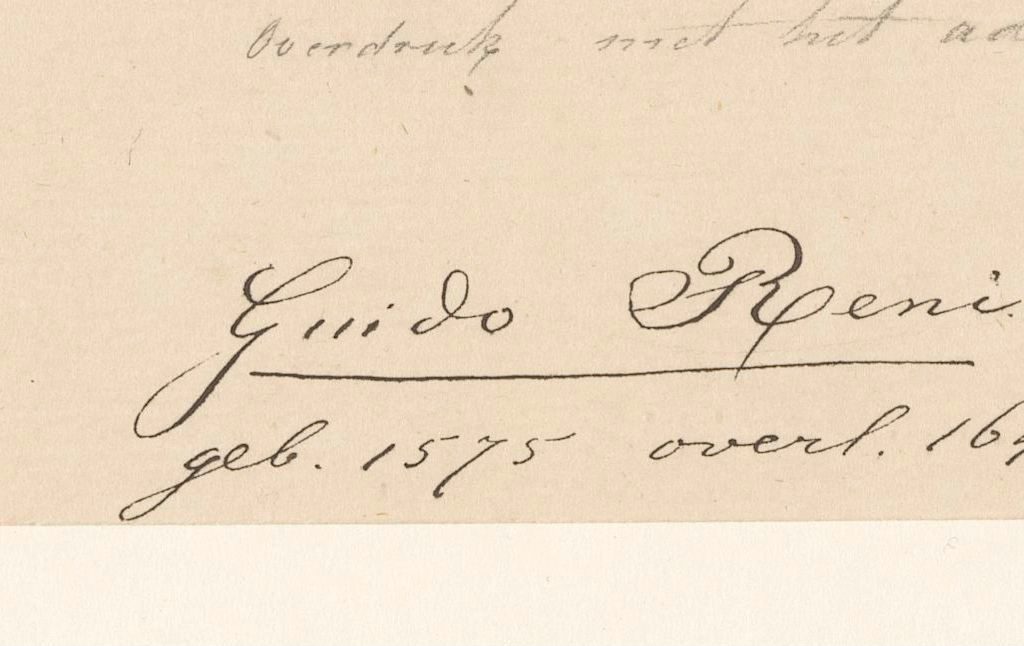 Overdruk met het ad
Guido Reni.
geb. 1575 overl. 164